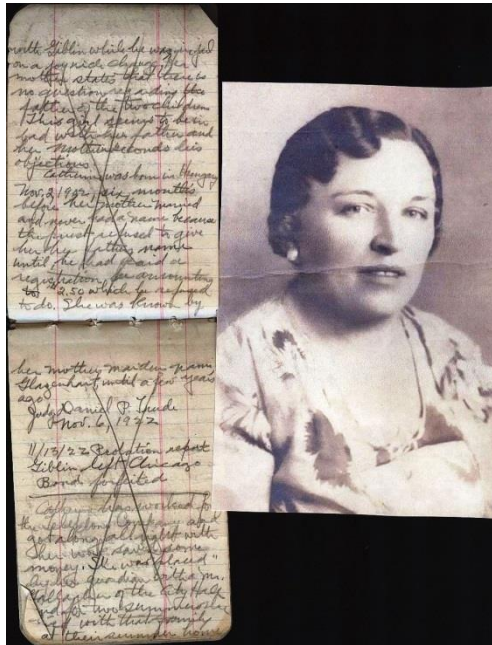 with Giblin while he was
on a
mother states that there is
no question regarding the
father of the two children
This girl seems to be in
bad with her father and
her mother seconds his
objections
was born in Hungary
Nov. 2, 1902, six months
before her mother married
and never had a name because
the priest refused to give
her her father's name
until he had paid a
registration fee amounting
to $2.50 which he refused
to do. She was known by
her mother's maiden name
until a few years
ago
Judge Daniel P. Trude
Nov. 6, 1922
11/13/22 report
Giblin left Chicago
Bond forfeited
has worked for
the Company and
got along all right with
her work some
money. She was placed
under guardian with a Mr.
of the City Hall
and for two summers
with that family
at their summer home